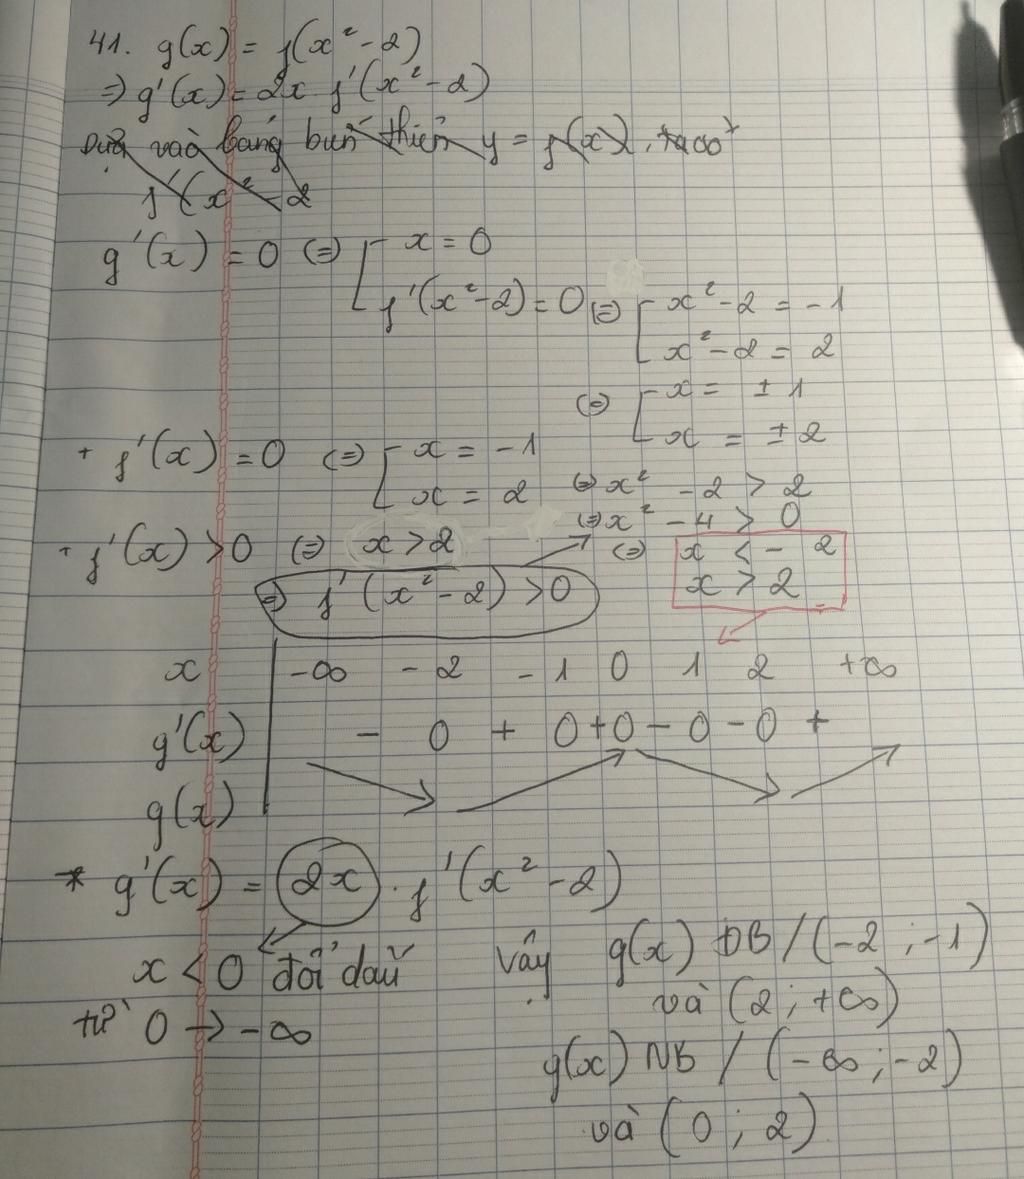 41. g(x) = f(x² - 2)
⇒ g'(x) = 2x f'(x² - 2)
Dựa vào bảng biến thiên y = f(x), ta có
f'(x² - 2
g'(x) = 0 (=) [ x = 0
f'(x² - 2) = 0 (=) [ x² - 2 = -1
x² - 2 = 2
(=) [ x = ± 1
x = ± 2
+ f'(x) = 0 (=) [ x = -1
x = 2
+ f'(x) > 0 (=) x > 2
⇒ f'(x² - 2) > 0
(=) x² - 2 > 2
(=) x² - 4 > 0
(=) x < - 2
x > 2
x | -∞ - 2 - 1 0 1 2 +∞
g'(x) | - 0 + 0 + 0 - 0 - 0 +
g(x)
* g'(x) = 2x . f'(x² - 2)
x < 0 đổi dấu
từ 0 → -∞
Vậy g(x) ĐB / (-2 ; -1)
và (2 ; +∞)
g(x) NB / (-∞ ; -2)
và (0 ; 2)